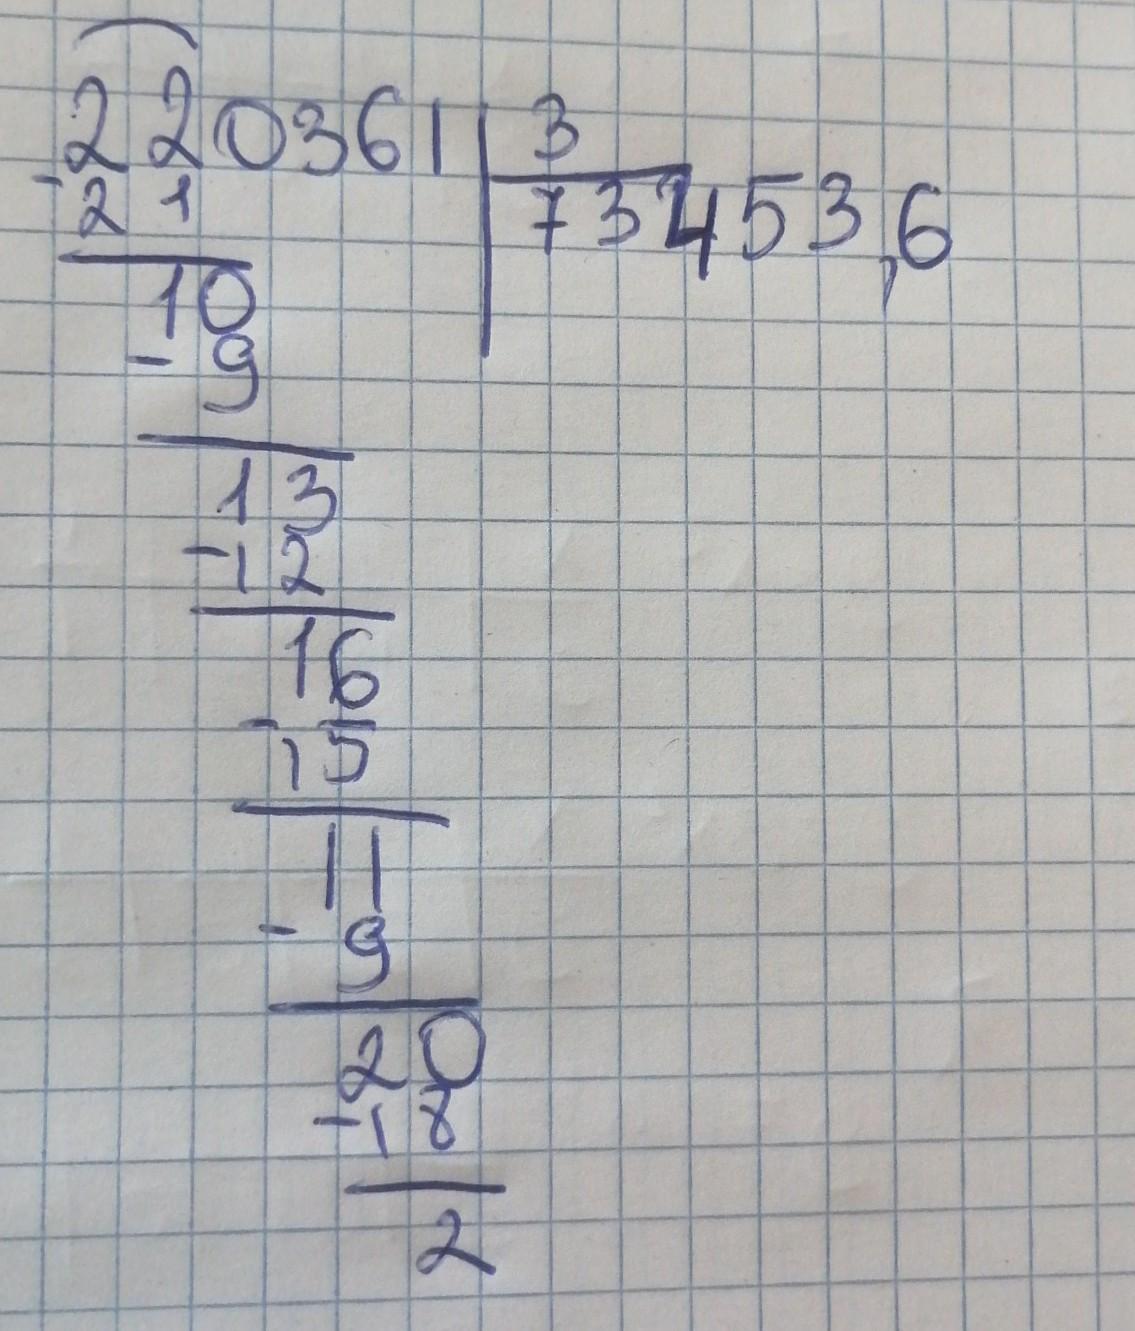 220361 3
- 21 73453,6
10
- 9
13
- 12
16
- 15
11
- 9
20
- 18
2